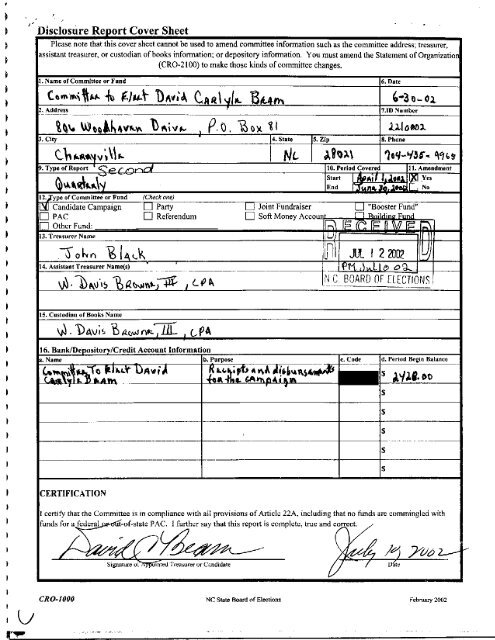 Disclosure Report Cover Sheet
Please note that this cover sheet cannot be used to amend committee information such as the committee address, treasurer,
assistant treasurer, or custodian of books information; or depository information. You must amend the Statement of Organization
(CRO-2100) to make those kinds of committee changes.
1. Name of Committee or Fund 6. Date
Committee to Elect David Carlyle Beam 6-30-02
2. Address 7. ID Number
806 Woodhaven Drive, P.O. Box 81
3. City 4. State 5. Zip 8. Phone
Cherryville NC 28021 704-435-9969
9. Type of Report 10. Period Covered 11. Amendment
Second Quarterly
Start April 1, 2002 Yes
End June 30, 2002 No
12. Type of Committee or Fund (Check one)
Candidate Campaign Party Joint Fundraiser "Booster Fund"
PAC Referendum Soft Money Account Building Fund
Other Fund:
RECEIVED
13. Treasurer Name
John Black
JUL 12 2002
14. Assistant Treasurer Name(s)
W. Davis Browne, III, CPA
NC BOARD OF ELECTIONS
15. Custodian of Books Name
W. Davis Browne, III, CPA
16. Bank/Depository/Credit Account Information
a. Name b. Purpose c. Code d. Period Begin Balance
Committee To Elect David Receipts and disbursements $ 2428.00
Carlyle Beam for the campaign
$
$
$
$
CERTIFICATION
I certify that the Committee is in compliance with all provisions of Article 22A, including that no funds are commingled with
funds for a federal or out-of-state PAC. I further say that this report is complete, true and correct.
David C Beam July 10, 2002
Signature of Appointed Treasurer or Candidate Date
CRO-1000 NC State Board of Elections February 2002